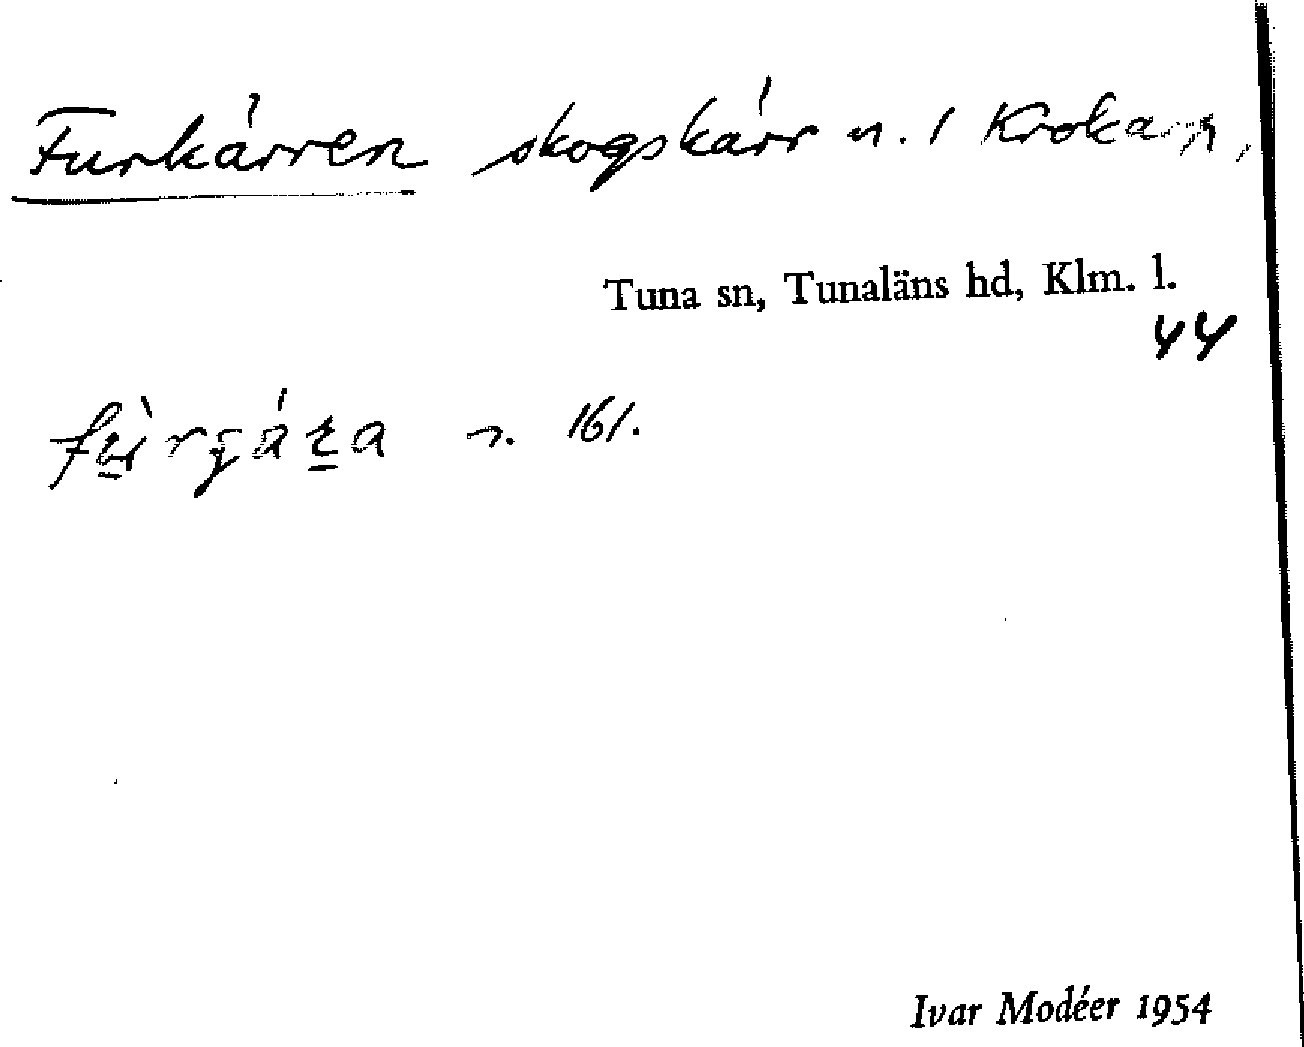 Furkärren skogskärr n. 1 Krokarp,
Tuna sn, Tunaläns hd, Klm. l.
44
n. 161.
Ivar Modéer 1954